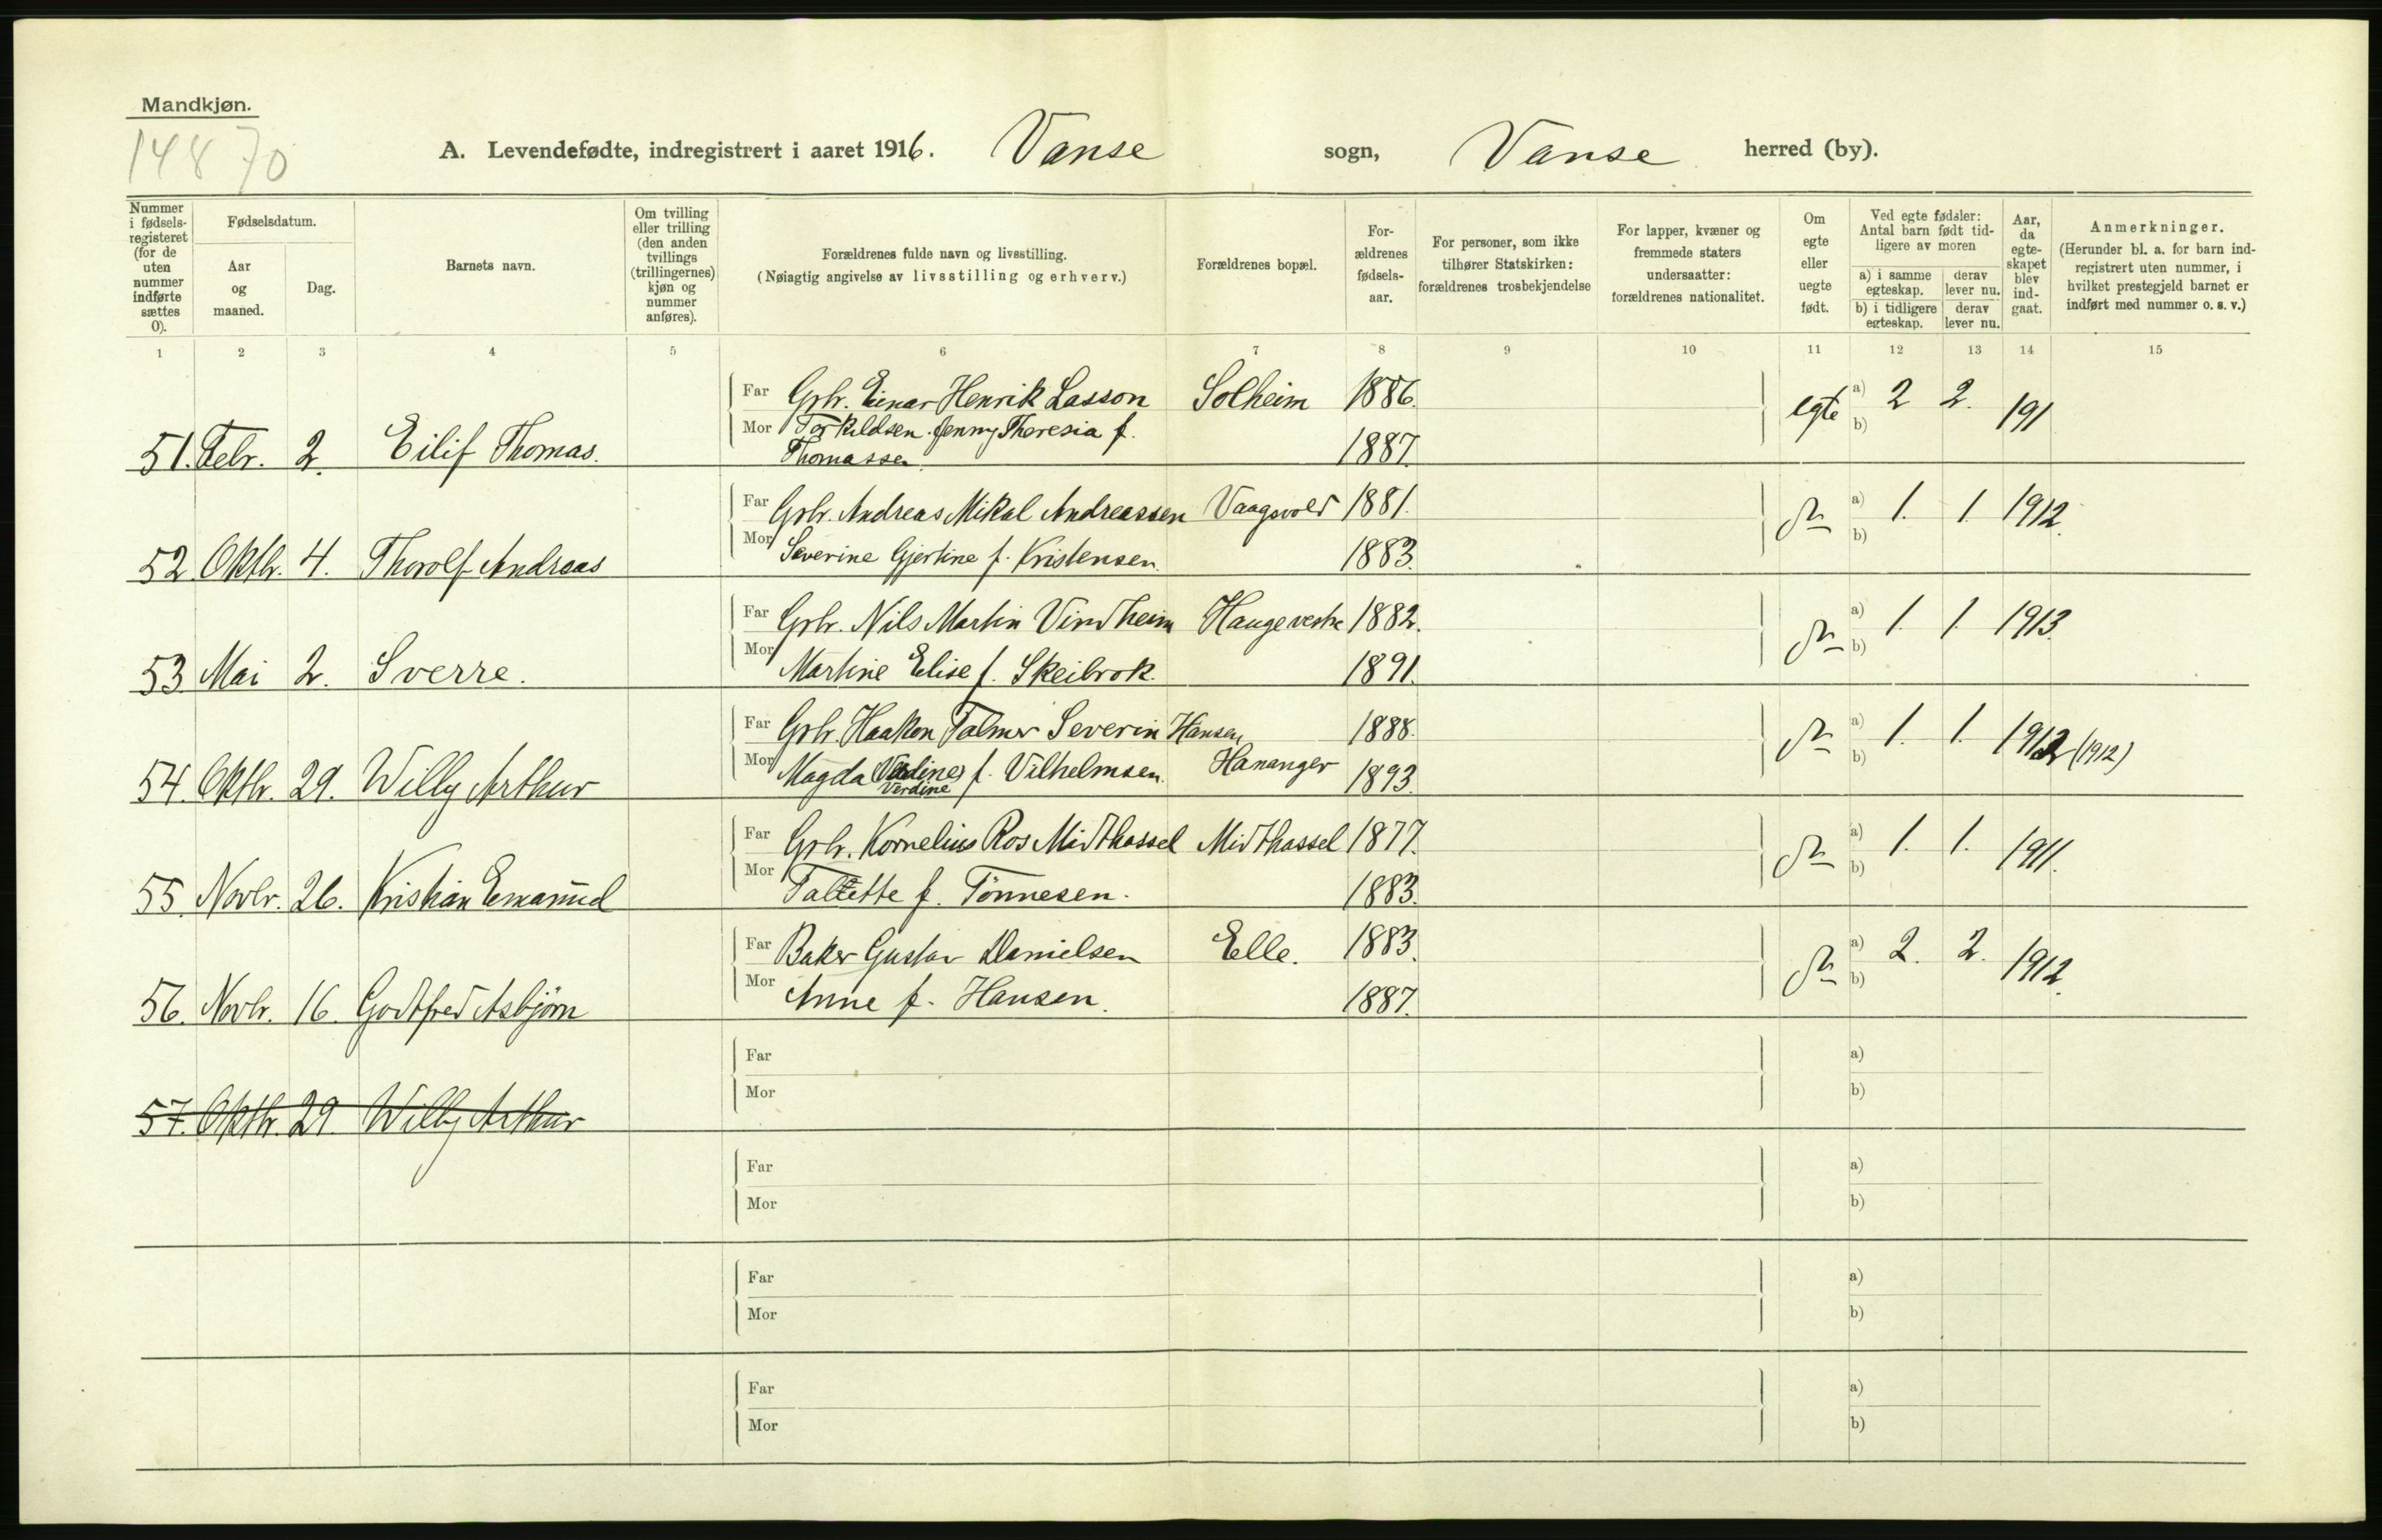 Mandkjøn.
14870
A. Levendefødte, indregistrert i aaret 1916. Vanse sogn, Vanse herred (by).
Nummer i fødselsregisteret (for de uten nummer indførte sættes 0).
Fødselsdatum.
Aar og maaned.
Dag.
Barnets navn.
Om tvilling eller trilling (den anden tvillings (trillingernes) kjøn og nummer anføres).
Forældrenes fulde navn og livsstilling.
(Nøiagtig angivelse av livsstilling og erhverv.)
Forældrenes bopæl.
Forældrenes fødselsaar.
For personer, som ikke tilhører Statskirken: forældrenes trosbekjendelse
For lapper, kvæner og fremmede staters undersaatter: forældrenes nationalitet.
Om egte eller uegte født.
Ved egte fødsler: Antal barn født tidligere av moren
a) i samme egteskap. derav lever nu.
b) i tidligere egteskap. derav lever nu.
Aar, da egteskapet blev indgaat.
Anmerkninger.
(Herunder bl. a. for barn indregistrert uten nummer, i hvilket prestegjeld barnet er indført med nummer o. s. v.)
1 2 3 4 5 6 7 8 9 10 11 12 13 14 15
Far Grbr. Einar Henrik Lasson Solheim 1886. egte a) 2 2. 191
Mor Torkildsen. Jenny Theresia f. b)
51. Febr. 2. Eilif Thomas. Thomassen 1887.
Far Grbr. Andreas Mikal Andreassen Vaagsvold 1881. a) 1. 1. 1912.
52 Oktbr. 4. Thorolf Andreas Mor Severine Gjertine f. Kristensen. 1883. b)
Far Grbr. Nils Martin Vindheim Hauge vestre 1882. a) 1. 1. 1913.
53 Mai 2. Sverre. Mor Martine Elise f. Skeibrok. 1891. b)
Far Grbr. Haakon Palmer Severin Hansen 1888. a) 1. 1. 1912 (1912)
54. Oktbr. 29. Willy Arthur Mor Magda Verdine f. Vilhelmsen. Hananger 1893. b)
Verdine
Far Grbr. Kornelius Ros Midthassel Midthassel 1877. a) 1. 1. 1911.
55. Novbr. 26. Kristian Emanuel Mor Talette f. Tönnesen. 1883. b)
Far Baker Gustav Danielsen Elle. 1883. a) 2. 2. 1912.
56. Novbr. 16. Godtfred Asbjörn Mor Anne f. Hansen. 1887. b)
Far a)
Mor b)
57. Oktbr. 29. Willy Arthur
Far a)
Mor b)
Far a)
Mor b)
Far a)
Mor b)